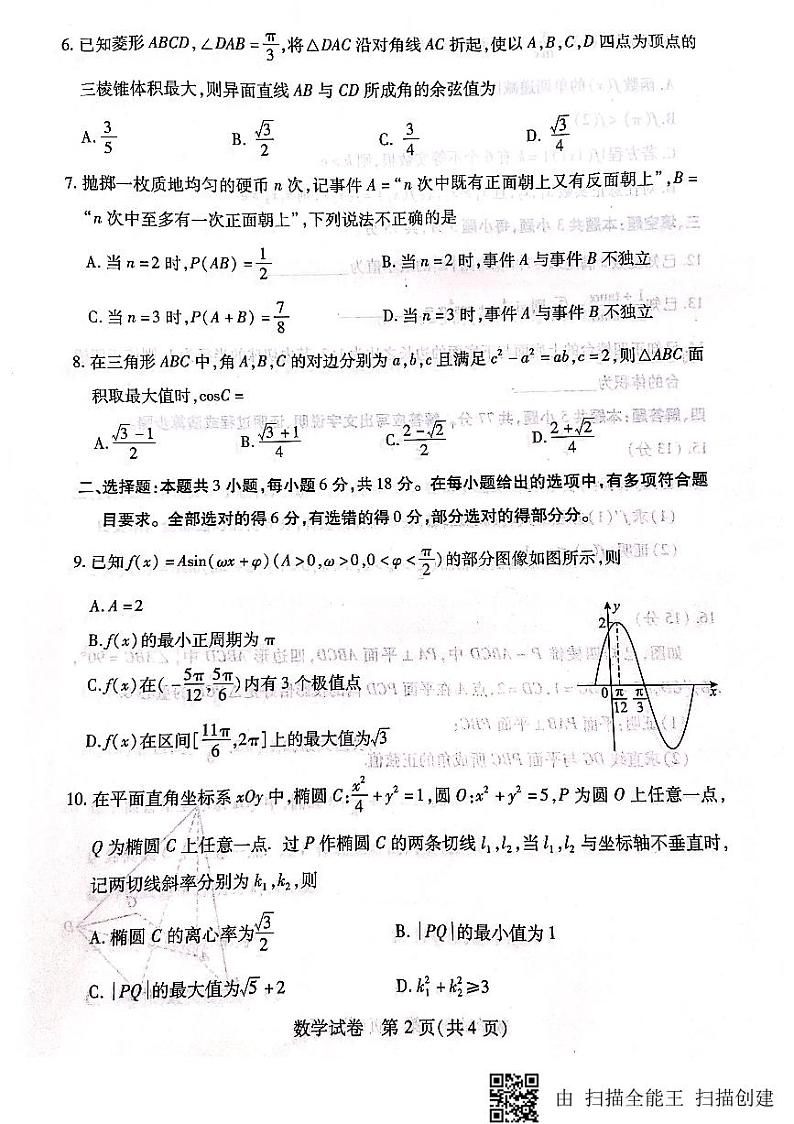 6. 已知菱形 ABCD, ∠DAB = π/3, 将△DAC 沿对角线 AC 折起, 使以 A, B, C, D 四点为顶点的
三棱锥体积最大, 则异面直线 AB 与 CD 所成角的余弦值为
A. 3/5 B. √3/2 C. 3/4 D. √3/4
7. 抛掷一枚质地均匀的硬币 n 次, 记事件 A = “n 次中既有正面朝上又有反面朝上”, B =
“n 次中至多有一次正面朝上”, 下列说法不正确的是
A. 当 n = 2 时, P(AB) = 1/2 B. 当 n = 2 时, 事件 A 与事件 B 不独立
C. 当 n = 3 时, P(A + B) = 7/8 D. 当 n = 3 时, 事件 A 与事件 B 不独立
8. 在三角形 ABC 中, 角 A, B, C 的对边分别为 a, b, c 且满足 c² − a² = ab, c = 2, 则△ABC 面
积取最大值时, cosC =
A. (√3 − 1)/2 B. (√3 + 1)/4 C. (2 − √2)/2 D. (2 + √2)/4
二、选择题: 本题共 3 小题, 每小题 6 分, 共 18 分。在每小题给出的选项中, 有多项符合题
目要求。全部选对的得 6 分, 有选错的得 0 分, 部分选对的得部分分。
9. 已知 f(x) = Asin(ωx + φ) (A > 0, ω > 0, 0 < φ < π/2) 的部分图像如图所示, 则
A. A = 2
B. f(x) 的最小正周期为 π
C. f(x) 在 (−5π/12, 5π/6) 内有 3 个极值点
D. f(x) 在区间 [11π/6, 2π] 上的最大值为 √3
y
2
0 π/12 π/3 x
10. 在平面直角坐标系 xOy 中, 椭圆 C: x²/4 + y² = 1, 圆 O: x² + y² = 5, P 为圆 O 上任意一点,
Q 为椭圆 C 上任意一点. 过 P 作椭圆 C 的两条切线 l₁, l₂, 当 l₁, l₂ 与坐标轴不垂直时,
记两切线斜率分别为 k₁, k₂, 则
A. 椭圆 C 的离心率为 √3/2 B. |PQ| 的最小值为 1
C. |PQ| 的最大值为 √5 + 2 D. k₁² + k₂² ⩾ 3
数学试卷 第 2 页(共 4 页)
由 扫描全能王 扫描创建